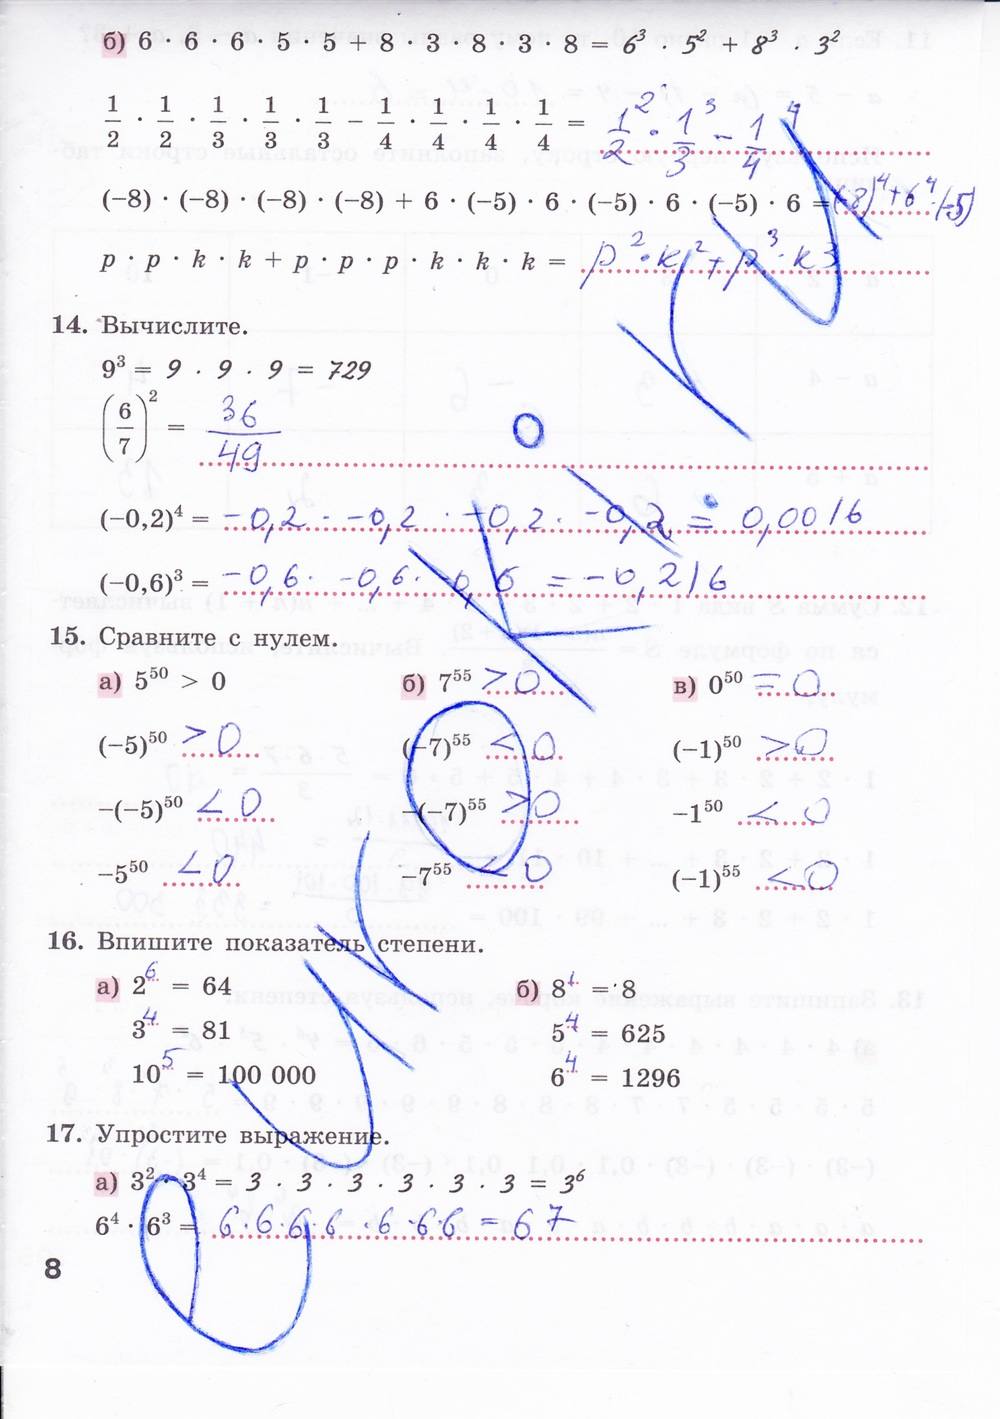 б) 6 · 6 · 6 · 5 · 5 + 8 · 3 · 8 · 3 · 8 = 6³ · 5² + 8³ · 3²
1/2 · 1/2 · 1/3 · 1/3 · 1/3 − 1/4 · 1/4 · 1/4 · 1/4 = 1/2² · 1/3³ − 1/4⁴
(−8) · (−8) · (−8) · (−8) + 6 · (−5) · 6 · (−5) · 6 · (−5) · 6 = (−8)⁴ + 6⁴ · (−5)
p · p · k · k + p · p · p · k · k · k = p² · k² + p³ · k3
14. Вычислите.
9³ = 9 · 9 · 9 = 729
(6/7)² = 36/49
(−0,2)⁴ = −0,2 · −0,2 · −0,2 · −0,2 = 0,0016
(−0,6)³ = −0,6 · −0,6 · −0,6 = −0,216
15. Сравните с нулем.
а) 5⁵⁰ > 0 б) 7⁵⁵ > 0 в) 0⁵⁰ = 0
(−5)⁵⁰ > 0 (−7)⁵⁵ < 0 (−1)⁵⁰ > 0
−(−5)⁵⁰ < 0 −(−7)⁵⁵ > 0 −1⁵⁰ < 0
−5⁵⁰ < 0 −7⁵⁵ < 0 (−1)⁵⁵ < 0
16. Впишите показатель степени.
а) 2⁶ = 64 б) 8¹ = 8
3⁴ = 81 5⁴ = 625
10⁵ = 100 000 6⁴ = 1296
17. Упростите выражение.
а) 3² · 3⁴ = 3 · 3 · 3 · 3 · 3 · 3 = 3⁶
6⁴ · 6³ = 6 · 6 · 6 · 6 · 6 · 6 · 6 = 6⁷
8